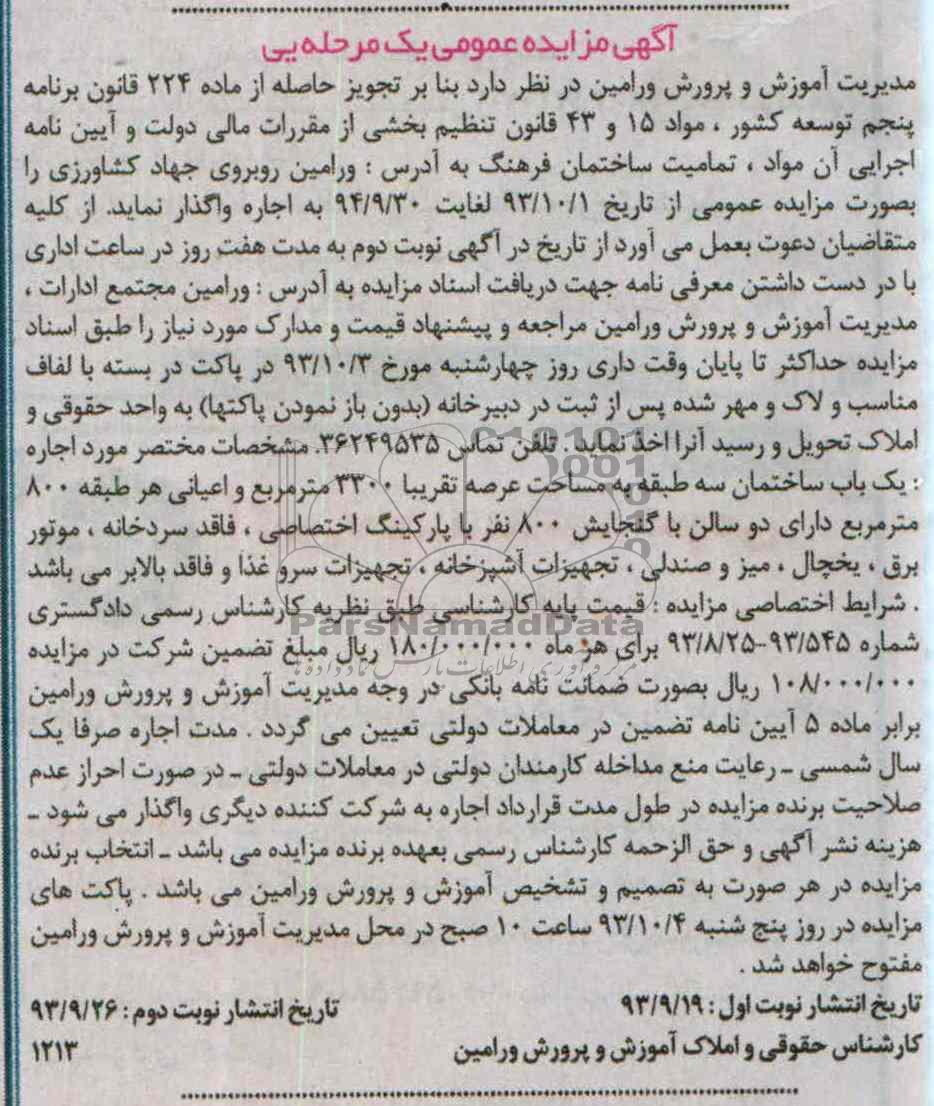 آگهی مزایده عمومی یک مرحله یی
مدیریت آموزش و پرورش ورامین در نظر دارد بنا بر تجویز حاصله از ماده ۲۲۴ قانون برنامه
پنجم توسعه کشور ، مواد ۱۵ و ۴۳ قانون تنظیم بخشی از مقررات مالی دولت و آیین نامه
اجرایی آن مواد ، تمامیت ساختمان فرهنگ به آدرس : ورامین روبروی جهاد کشاورزی را
بصورت مزایده عمومی از تاریخ ۹۳/۱۰/۱ لغایت ۹۴/۹/۳۰ به اجاره واگذار نماید. از کلیه
متقاضیان دعوت بعمل می آورد از تاریخ در آگهی نوبت دوم به مدت هفت روز در ساعت اداری
با در دست داشتن معرفی نامه جهت دریافت اسناد مزایده به آدرس : ورامین مجتمع ادارات ،
مدیریت آموزش و پرورش ورامین مراجعه و پیشنهاد قیمت و مدارک مورد نیاز را طبق اسناد
مزایده حداکثر تا پایان وقت داری روز چهارشنبه مورخ ۹۳/۱۰/۳ در پاکت در بسته با لفاف
مناسب و لاک و مهر شده پس از ثبت در دبیرخانه (بدون باز نمودن پاکتها) به واحد حقوقی و
املاک تحویل و رسید آنرا اخذ نماید . تلفن تماس ۳۶۲۴۹۵۳۵. مشخصات مختصر مورد اجاره
: یک باب ساختمان سه طبقه به مساحت عرصه تقریبا ۳۳۰۰ مترمربع و اعیانی هر طبقه ۸۰۰
مترمربع دارای دو سالن با گنجایش ۸۰۰ نفر با پارکینگ اختصاصی ، فاقد سردخانه ، موتور
برق ، یخچال ، میز و صندلی ، تجهیزات آشپزخانه ، تجهیزات سرو غذا و فاقد بالابر می باشد
. شرایط اختصاصی مزایده : قیمت پایه کارشناسی طبق نظریه کارشناس رسمی دادگستری
شماره ۹۳/۵۴۵-۹۳/۸/۲۵ برای هر ماه ۱۸۰/۰۰۰/۰۰۰ ریال مبلغ تضمین شرکت در مزایده
۱۰۸/۰۰۰/۰۰۰ ریال بصورت ضمانت نامه بانکی در وجه مدیریت آموزش و پرورش ورامین
برابر ماده ۵ آیین نامه تضمین در معاملات دولتی تعیین می گردد . مدت اجاره صرفا یک
سال شمسی ـ رعایت منع مداخله کارمندان دولتی در معاملات دولتی ـ در صورت احراز عدم
صلاحیت برنده مزایده در طول مدت قرارداد اجاره به شرکت کننده دیگری واگذار می شود ـ
هزینه نشر آگهی و حق الزحمه کارشناس رسمی بعهده برنده مزایده می باشد ـ انتخاب برنده
مزایده در هر صورت به تصمیم و تشخیص آموزش و پرورش ورامین می باشد . پاکت های
مزایده در روز پنج شنبه ۹۳/۱۰/۴ ساعت ۱۰ صبح در محل مدیریت آموزش و پرورش ورامین
مفتوح خواهد شد .
تاریخ انتشار نوبت اول : ۹۳/۹/۱۹ تاریخ انتشار نوبت دوم : ۹۳/۹/۲۶
کارشناس حقوقی و املاک آموزش و پرورش ورامین ۱۲۱۳
ParsNamadData